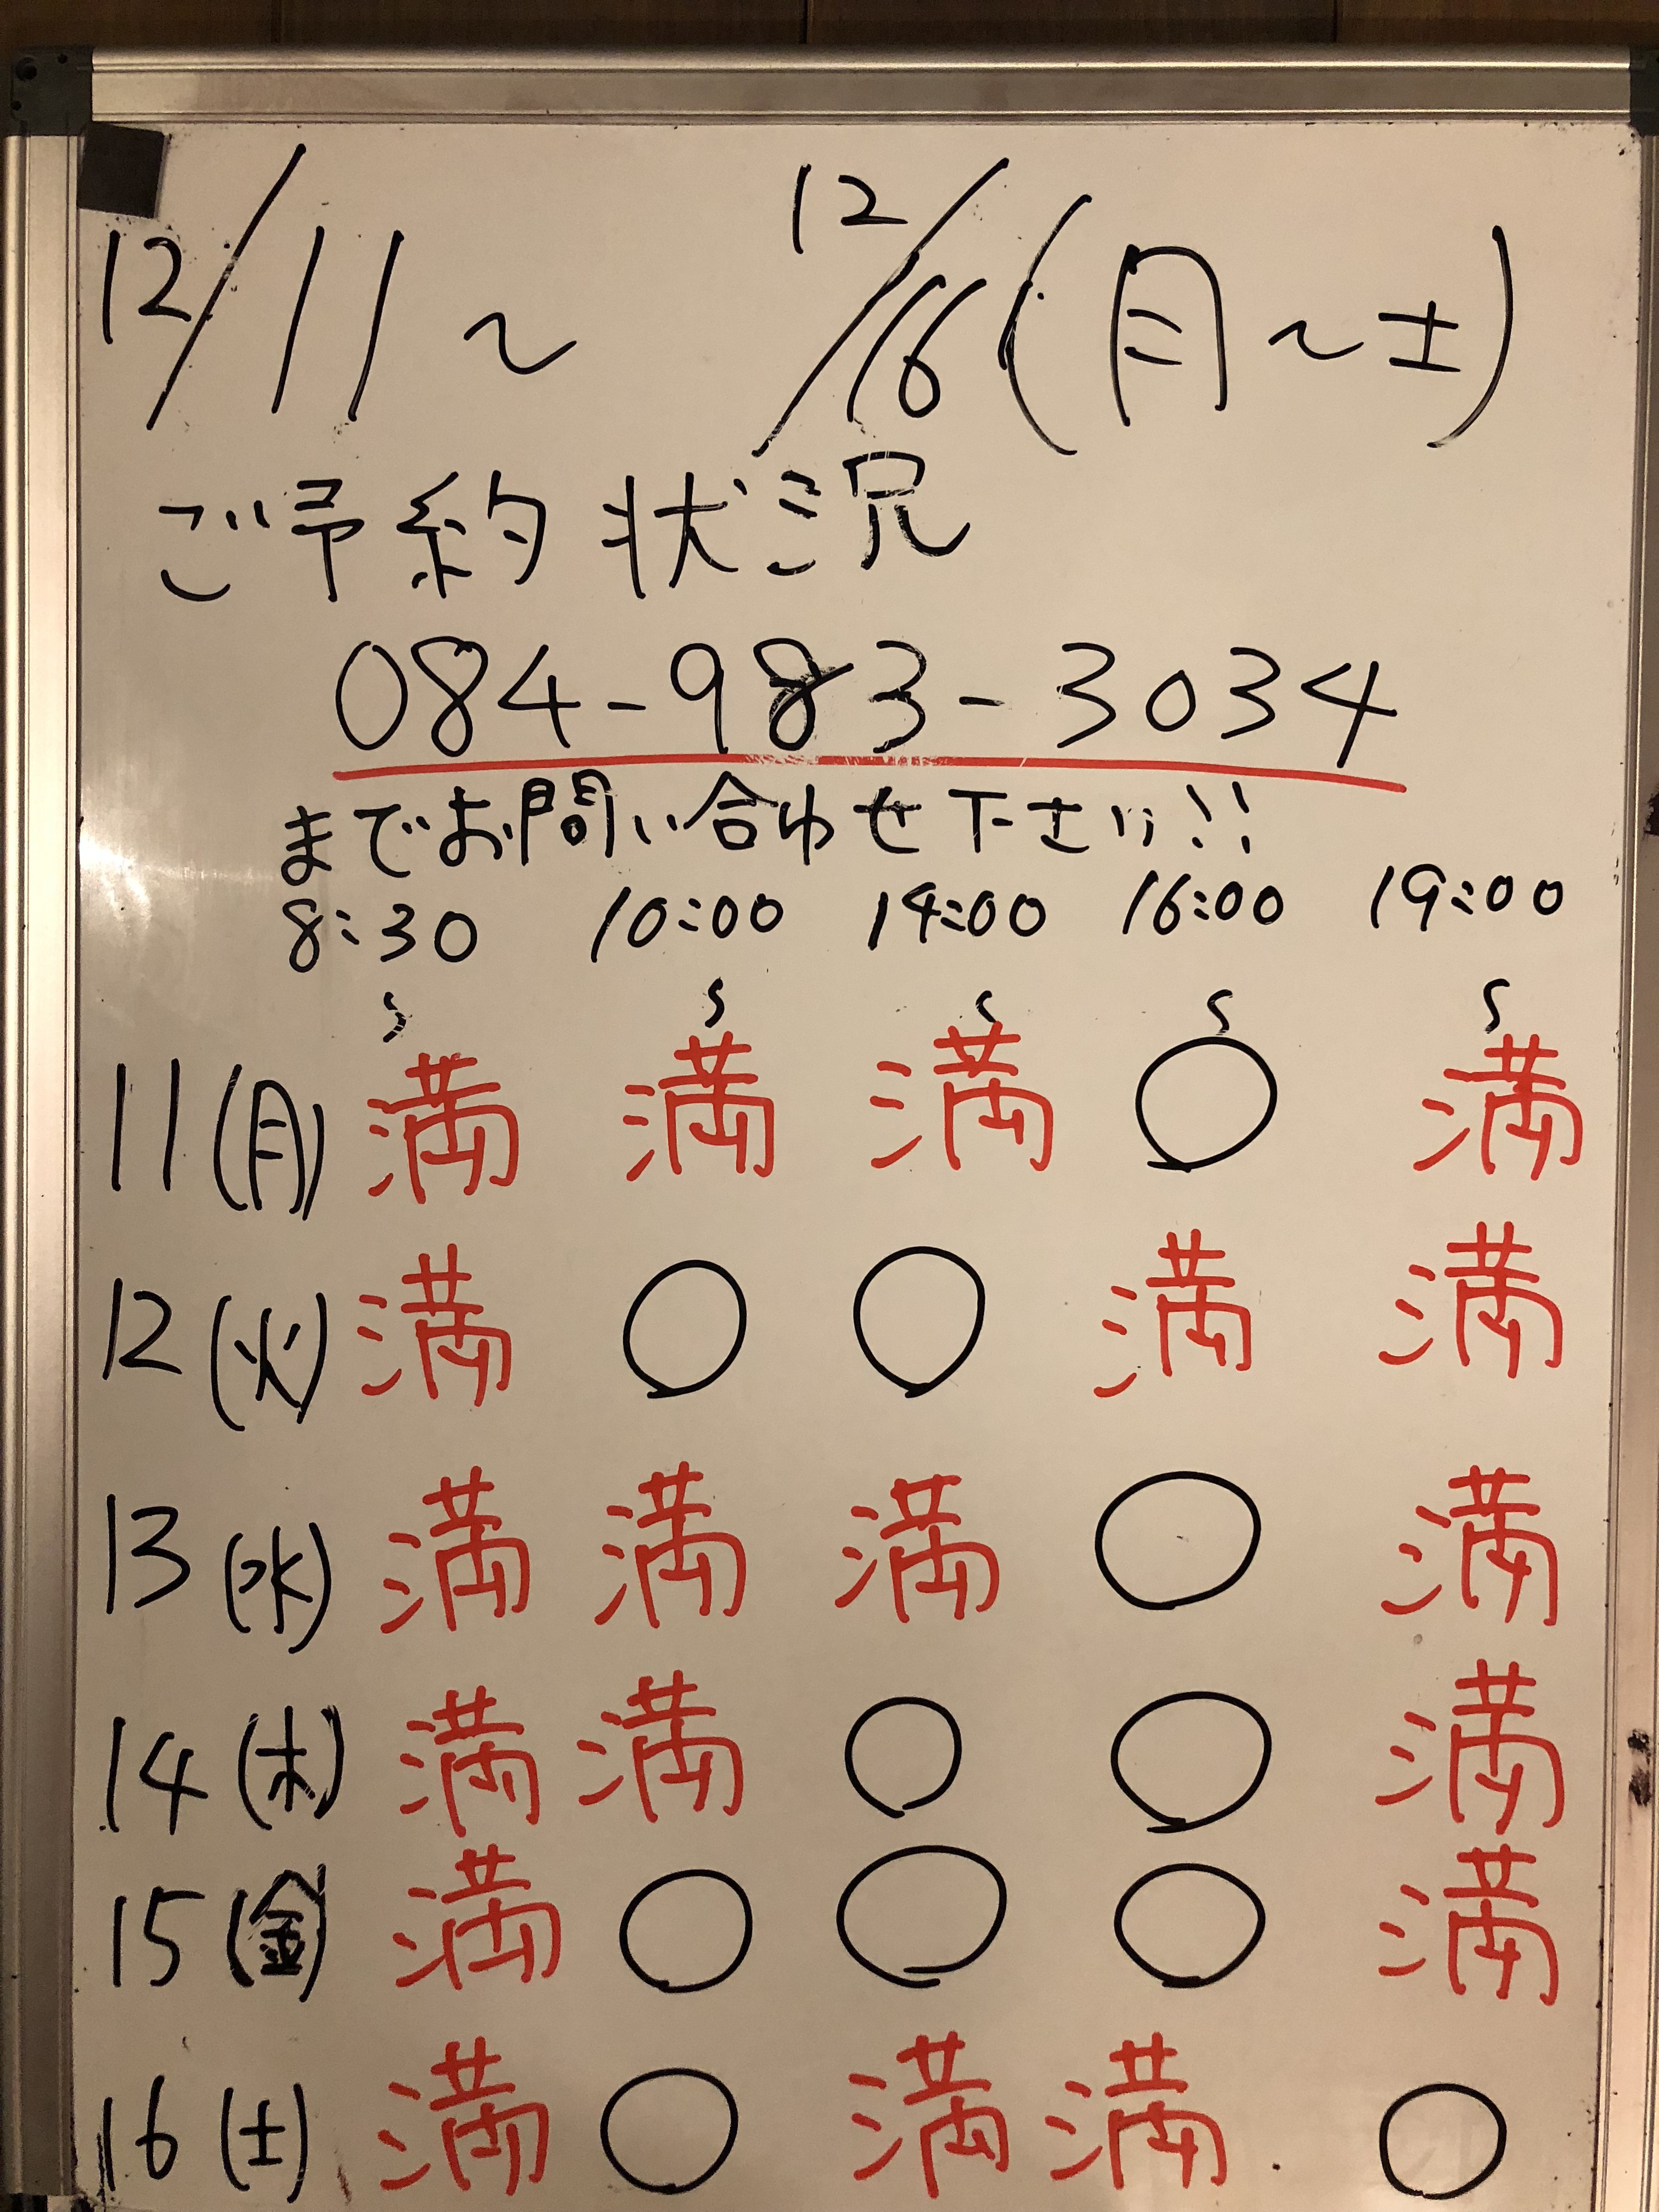 12/11〜 12/16(月〜土)
ご予約状況
084-983-3034
までお問い合わせ下さい!!
8:30 10:00 14:00 16:00 19:00
〜 〜 〜 〜 〜
11(月) 満 満 満 ○ 満
12(火) 満 ○ ○ 満 満
13(水) 満 満 満 ○ 満
14(木) 満 満 ○ ○ 満
15(金) 満 ○ ○ ○ 満
16(土) 満 ○ 満 満 ○